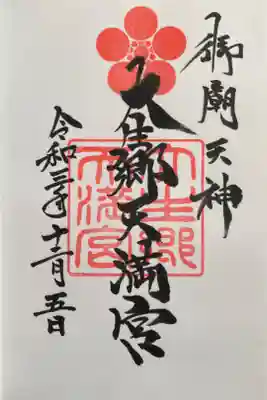 御廟天神
大生郷天満宮
大生郷天満宮
令和三年十一月五日